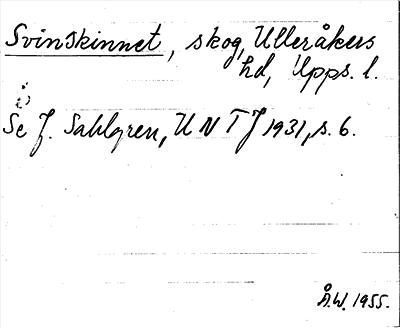 Svinskinnet, skog, Ulleråkers
hd, Upps. l.
Se J. Sahlgren, UNTJ 1931, s. 6.
Å.W. 1955.